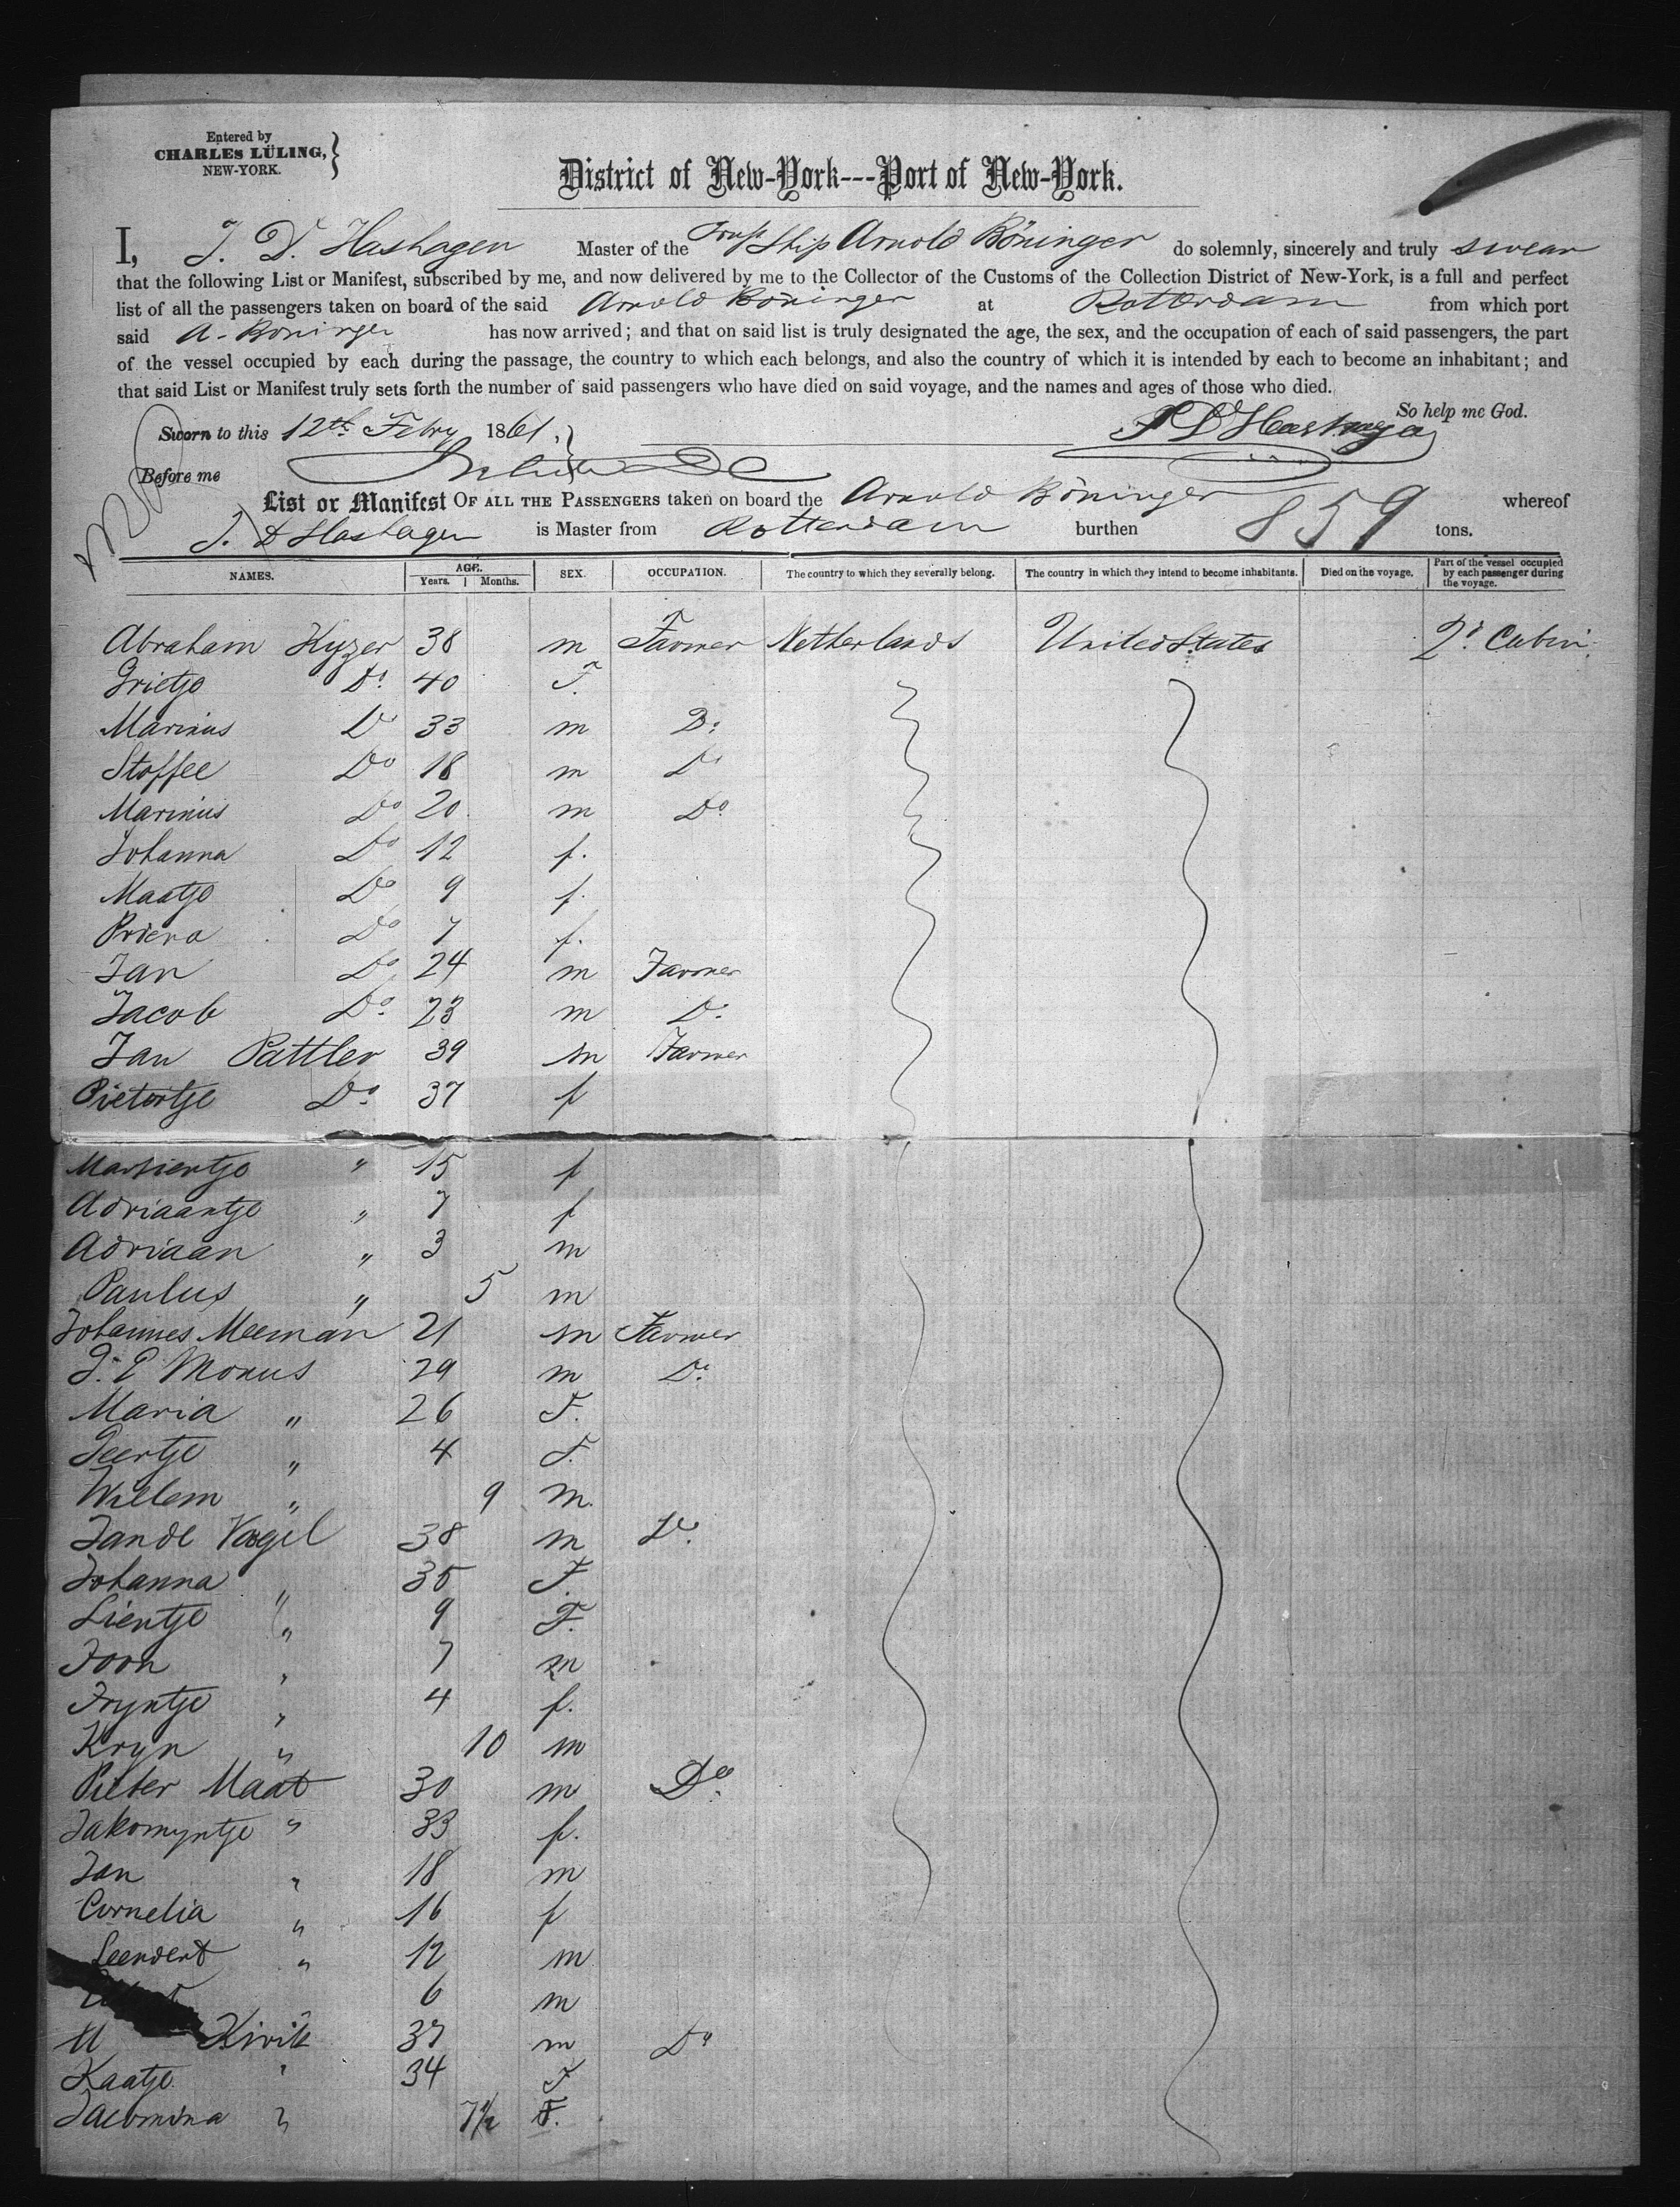 Entered by
CHARLES LÜLING,
NEW-YORK.
District of New-York---Port of New-York.
I, J. D. Hashagen Master of the Ship Arnold Böninger do solemnly, sincerely and truly swear
that the following List or Manifest, subscribed by me, and now delivered by me to the Collector of the Customs of the Collection District of New-York, is a full and perfect
list of all the passengers taken on board of the said Arnold Böninger at Rotterdam from which port
said A. Böninger has now arrived; and that on said list is truly designated the age, the sex, and the occupation of each of said passengers, the part
of the vessel occupied by each during the passage, the country to which each belongs, and also the country of which it is intended by each to become an inhabitant; and
that said List or Manifest truly sets forth the number of said passengers who have died on said voyage, and the names and ages of those who died.
So help me God.
Sworn to this 12th Febry 1861. J D Hashagen
Before me
List or Manifest OF ALL THE PASSENGERS taken on board the Arnold Böninger whereof
J. D Hashagen is Master from Rotterdam burthen 859 tons.
NAMES. AGE. Years. Months. SEX. OCCUPATION. The country to which they severally belong. The country in which they intend to become inhabitants. Died on the voyage. Part of the vessel occupied by each passenger during the voyage.
Abraham Kyzer 38 m Farmer Netherlands United States 2d. Cabin
Grietje Do 40 F.
Marinus Do 33 m Do
Stoffel Do 18 m Do
Marinus Do 20 m Do
Johanna Do 12 f.
Maatje Do 9 f.
Do 7 f.
Jan Do 24 m Farmer
Jacob Do 23 m Do
Jan Pattler 39 m Farmer
Pietertje Do 37 f
15 f
Adriaantje " 7 f
Adriaan " 3 m
Paulus " 5 m
Johannes Meeman 21 m Farmer
Monus 29 m Do
Maria " 26 F.
Geertje " 4 F.
Willem " 9 m.
Jan de Vogel 38 m Do
Johanna " 35 F.
Lientje " 9 F.
Toon " 7 m
Tryntje " 4 f.
Kryn " 10 m
Pieter Maat 30 m Do
Jakomyntje " 33 f.
Jan " 18 m
Cornelia " 16 f
Leendert " 12 m
6 m
37 m Do
Kaatje " 34 F
Jacomina " 7½ F.